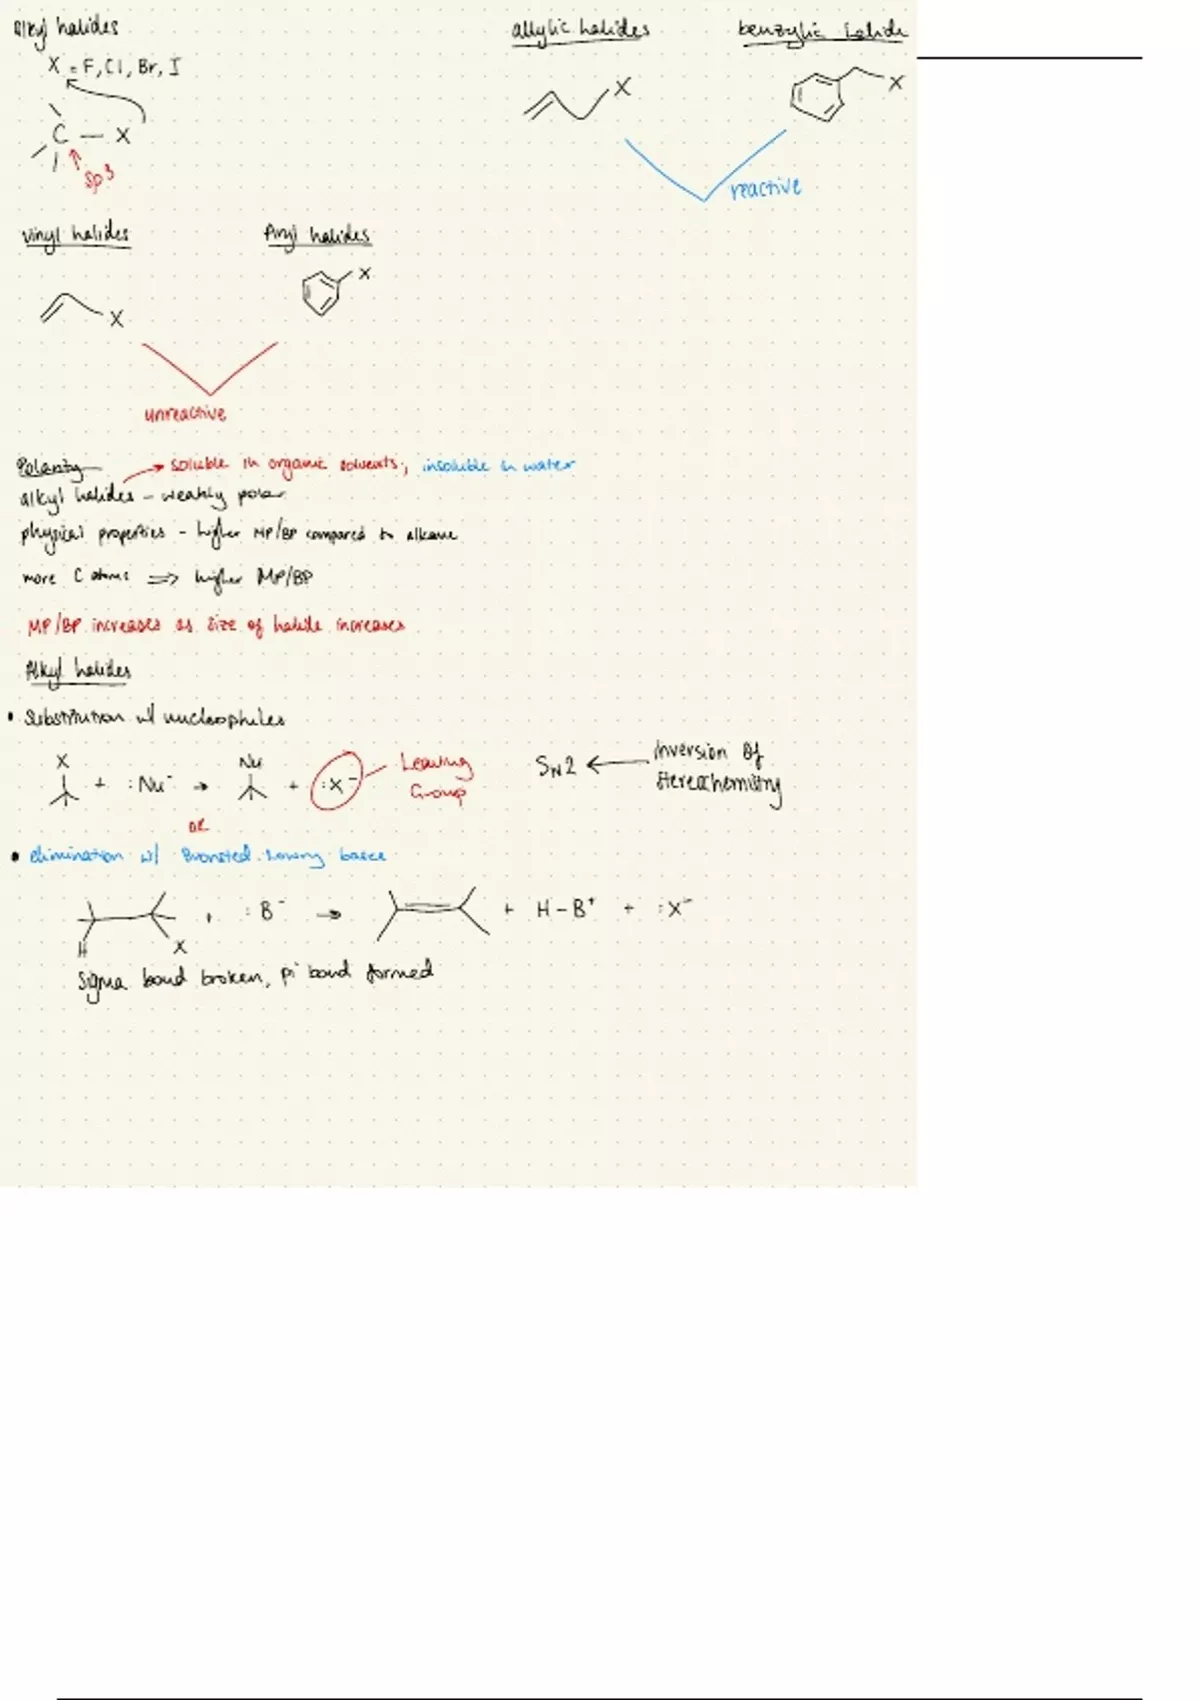 alkyl halides
X = F, Cl, Br, I
C — X
sp3
allylic halides
X
benzylic halide
X
reactive
vinyl halides
X
Aryl halides
X
unreactive
Polarity → soluble in organic solvents, insoluble in water
alkyl halides - weakly polar
physical properties - higher MP/BP compared to alkane
more C atoms => higher MP/BP
MP/BP increases as size of halide increases
Alkyl halides
• Substitution w/ nucleophiles
X + :Nu⁻ → Nu + :X⁻ Leaving Group
SN2 ← inversion of stereochemistry
OR
• elimination w/ Bronsted-Lowry base
H X + :B⁻ → + H-B⁺ + :X⁻
Sigma bond broken, pi bond formed